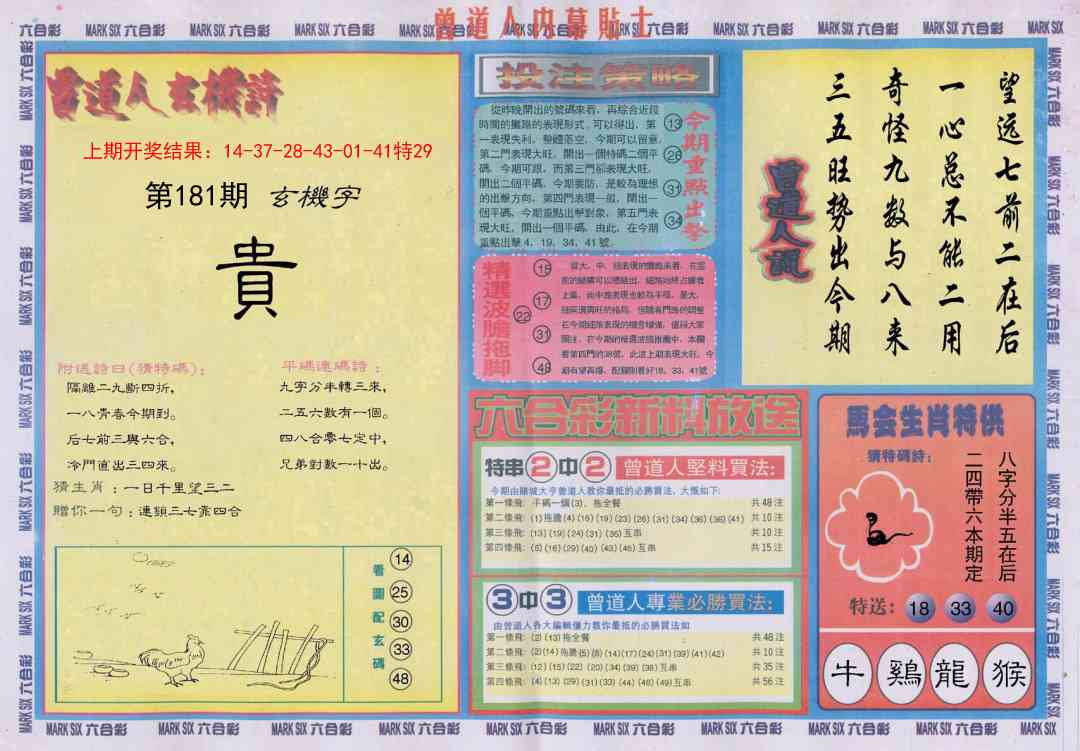 曾道人内幕貼士
MARK SIX 六合彩
曾道人玄機詩
上期开奖结果：14-37-28-43-01-41特29
第181期 玄機字
貴
附送詩曰(猜特碼)：
隔離二九斷四折,
一八青春今期到。
后七前三與六合,
冷門直出三四來。
平碼連碼詩：
九字分半轉三來,
二五六數有一個。
四八合零七定中,
兄弟對數一十出。
猜生肖：一日千里望三二
贈你一句：連鎖三七靠四合
看圖配玄碼
14
25
30
33
48
投注策略
從昨晚開出的號碼來看，再綜合近段
時間的攤路的表現形式，可以得出，第
一表現失利，整體落空，今期可以留意，
第二門表現大旺，開出一個特碼二個平
碼，今期可跟，而第三門部表現大旺，
開出二個平碼，今期要防，是較為理想
的出擊方向，第四門表現一般，開出一
個平碼，今期重點出擊對象，第五門表
現大旺，開出一個平碼，由此，在今期
重點出擊 4、19、34、41 號。
13
26
31
34
今期重點出擊
精選波膽拖脚
18
17
22
31
48
期有望再爆，配腳則看好18、33、41號
六合彩新料放送
特串2中2 曾道人堅料買法:
今期由賭城大亨曾道人教你最抵的必勝買法，大概如下:
第一條飛: 平碼一個(3)，拖全餐 共48注
第二條飛: (1)拖膽(4)(16)(19)(23)(26)(31)(34)(36)(38)(41) 共10注
第三條飛: (13)(19)(24)(31)(35)互串 共10注
第四條飛: (5)(16)(29)(40)(43)(45)互串 共15注
3中3 曾道人專業必勝買法:
由曾道人各大編輯傾力教你最抵的必勝買法如
第一條飛: (2)(13)拖全餐 共48注
第二條飛: (2)(14)拖膽(5)(8)(14)(17)(24)(31)(39)(41)(42) 共10注
第三條飛: (12)(15)(22)(20)(34)(39)(38)互串 共35注
第四條飛: (4)(13)(29)(31)(33)(44)(46)(49)互串 共56注
曾道人詞
望远七前二在后
一心总不能二用
奇怪九数与八来
三五旺势出今期
馬会生肖特供
猜特碼詩：
八字分半五在后
二四帶六本期定
特送： 18 33 40
牛 鷄 龍 猴